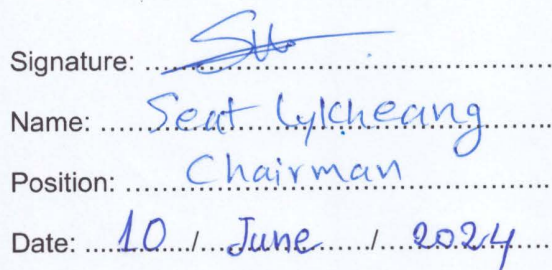 Signature: ..............................
Name: ..... Seat Lykheang .....
Position: ........ Chairman ........
Date: .... 10 ... / ... June ... / ... 2024 ...